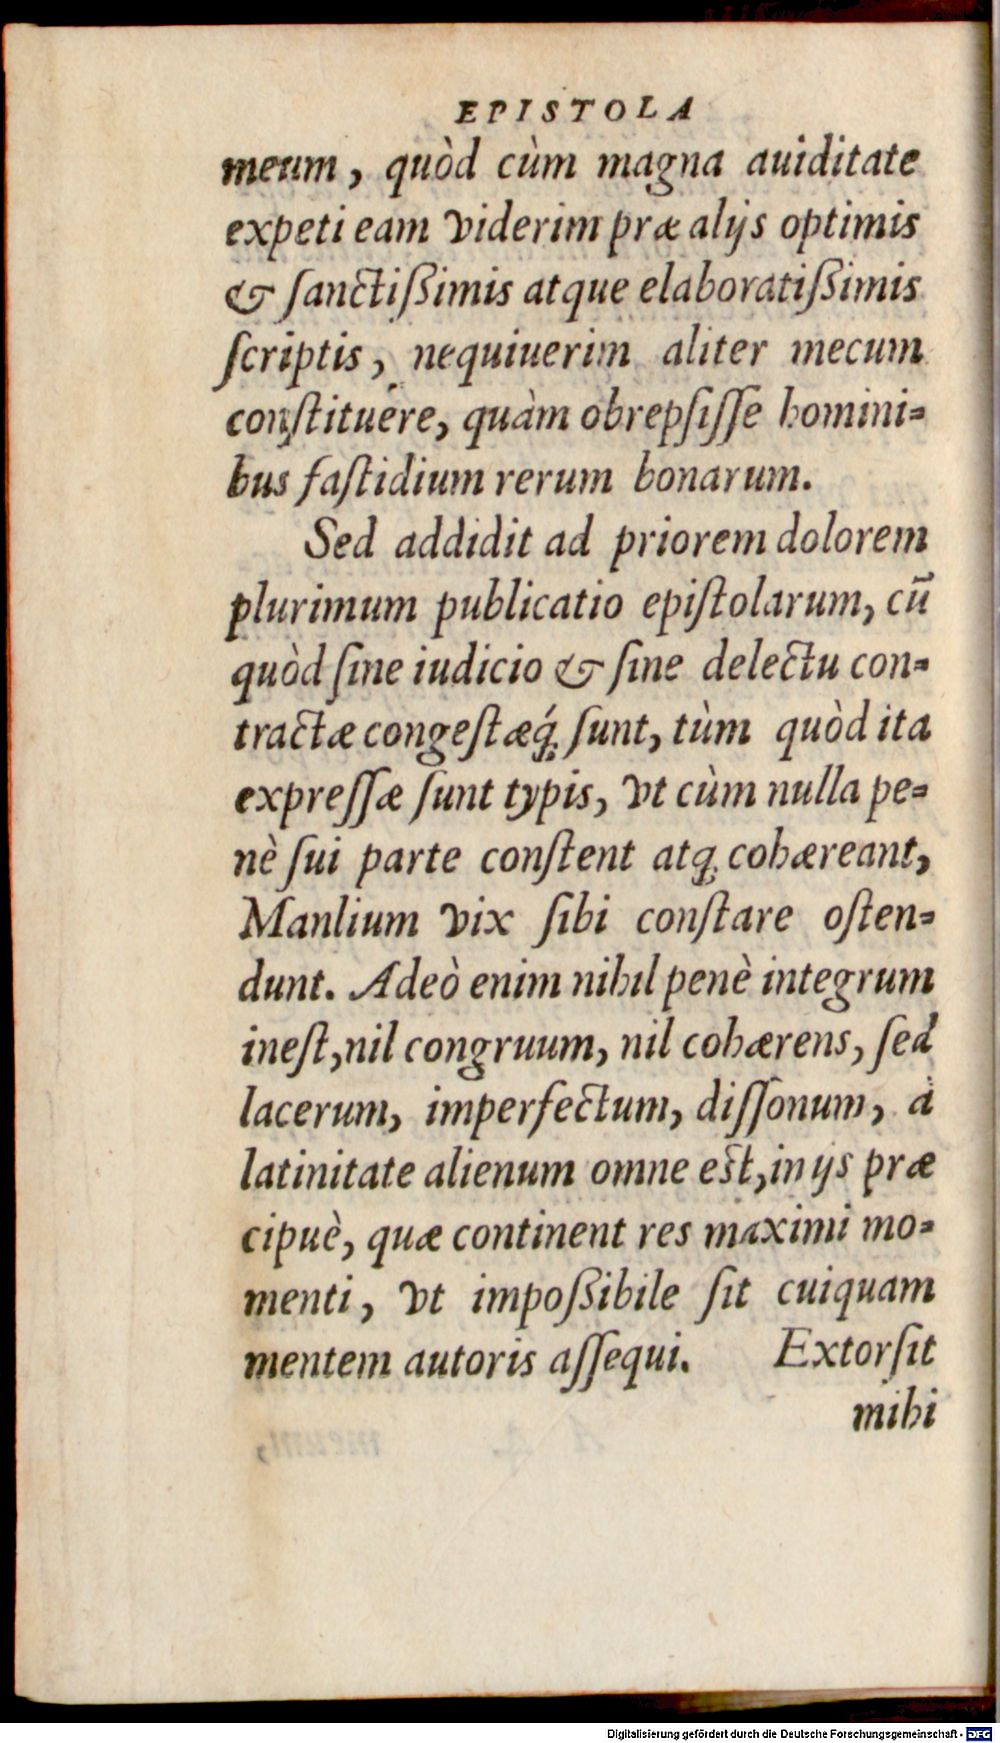 EPISTOLA
meum, quòd cùm magna auiditate
expeti eam viderim præ alijs optimis
& ſanctiſsimis atque elaboratiſsimis
ſcriptis, nequiuerim aliter mecum
conſtituere, quàm obrepſiſſe homini-
bus faſtidium rerum bonarum.
Sed addidit ad priorem dolorem
plurimum publicatio epiſtolarum, cũ
quòd ſine iudicio & ſine delectu con-
tractæ congeſtæq́; ſunt, tùm quòd ita
expreſſæ ſunt typis, vt cùm nulla pe-
nè ſui parte conſtent atq; cohæreant,
Manlium vix ſibi conſtare oſten-
dunt. Adeò enim nihil penè integrum
ineſt, nil congruum, nil cohærens, ſed
lacerum, imperfectum, diſſonum, à
latinitate alienum omne eſt, in ijs præ
cipuè, quæ continent res maximi mo-
menti, vt impoſsibile ſit cuiquam
mentem autoris aſſequi. Extorſit
mihi
Digitalisierung gefördert durch die Deutsche Forschungsgemeinschaft - DFG